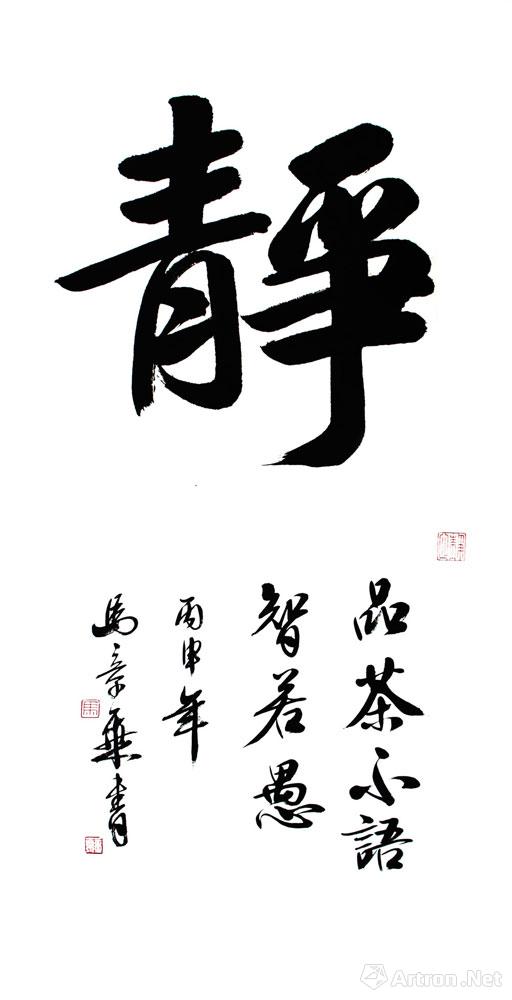 靜
品茶不語
智若愚
丙申年
馬章乘青
Artron.Net